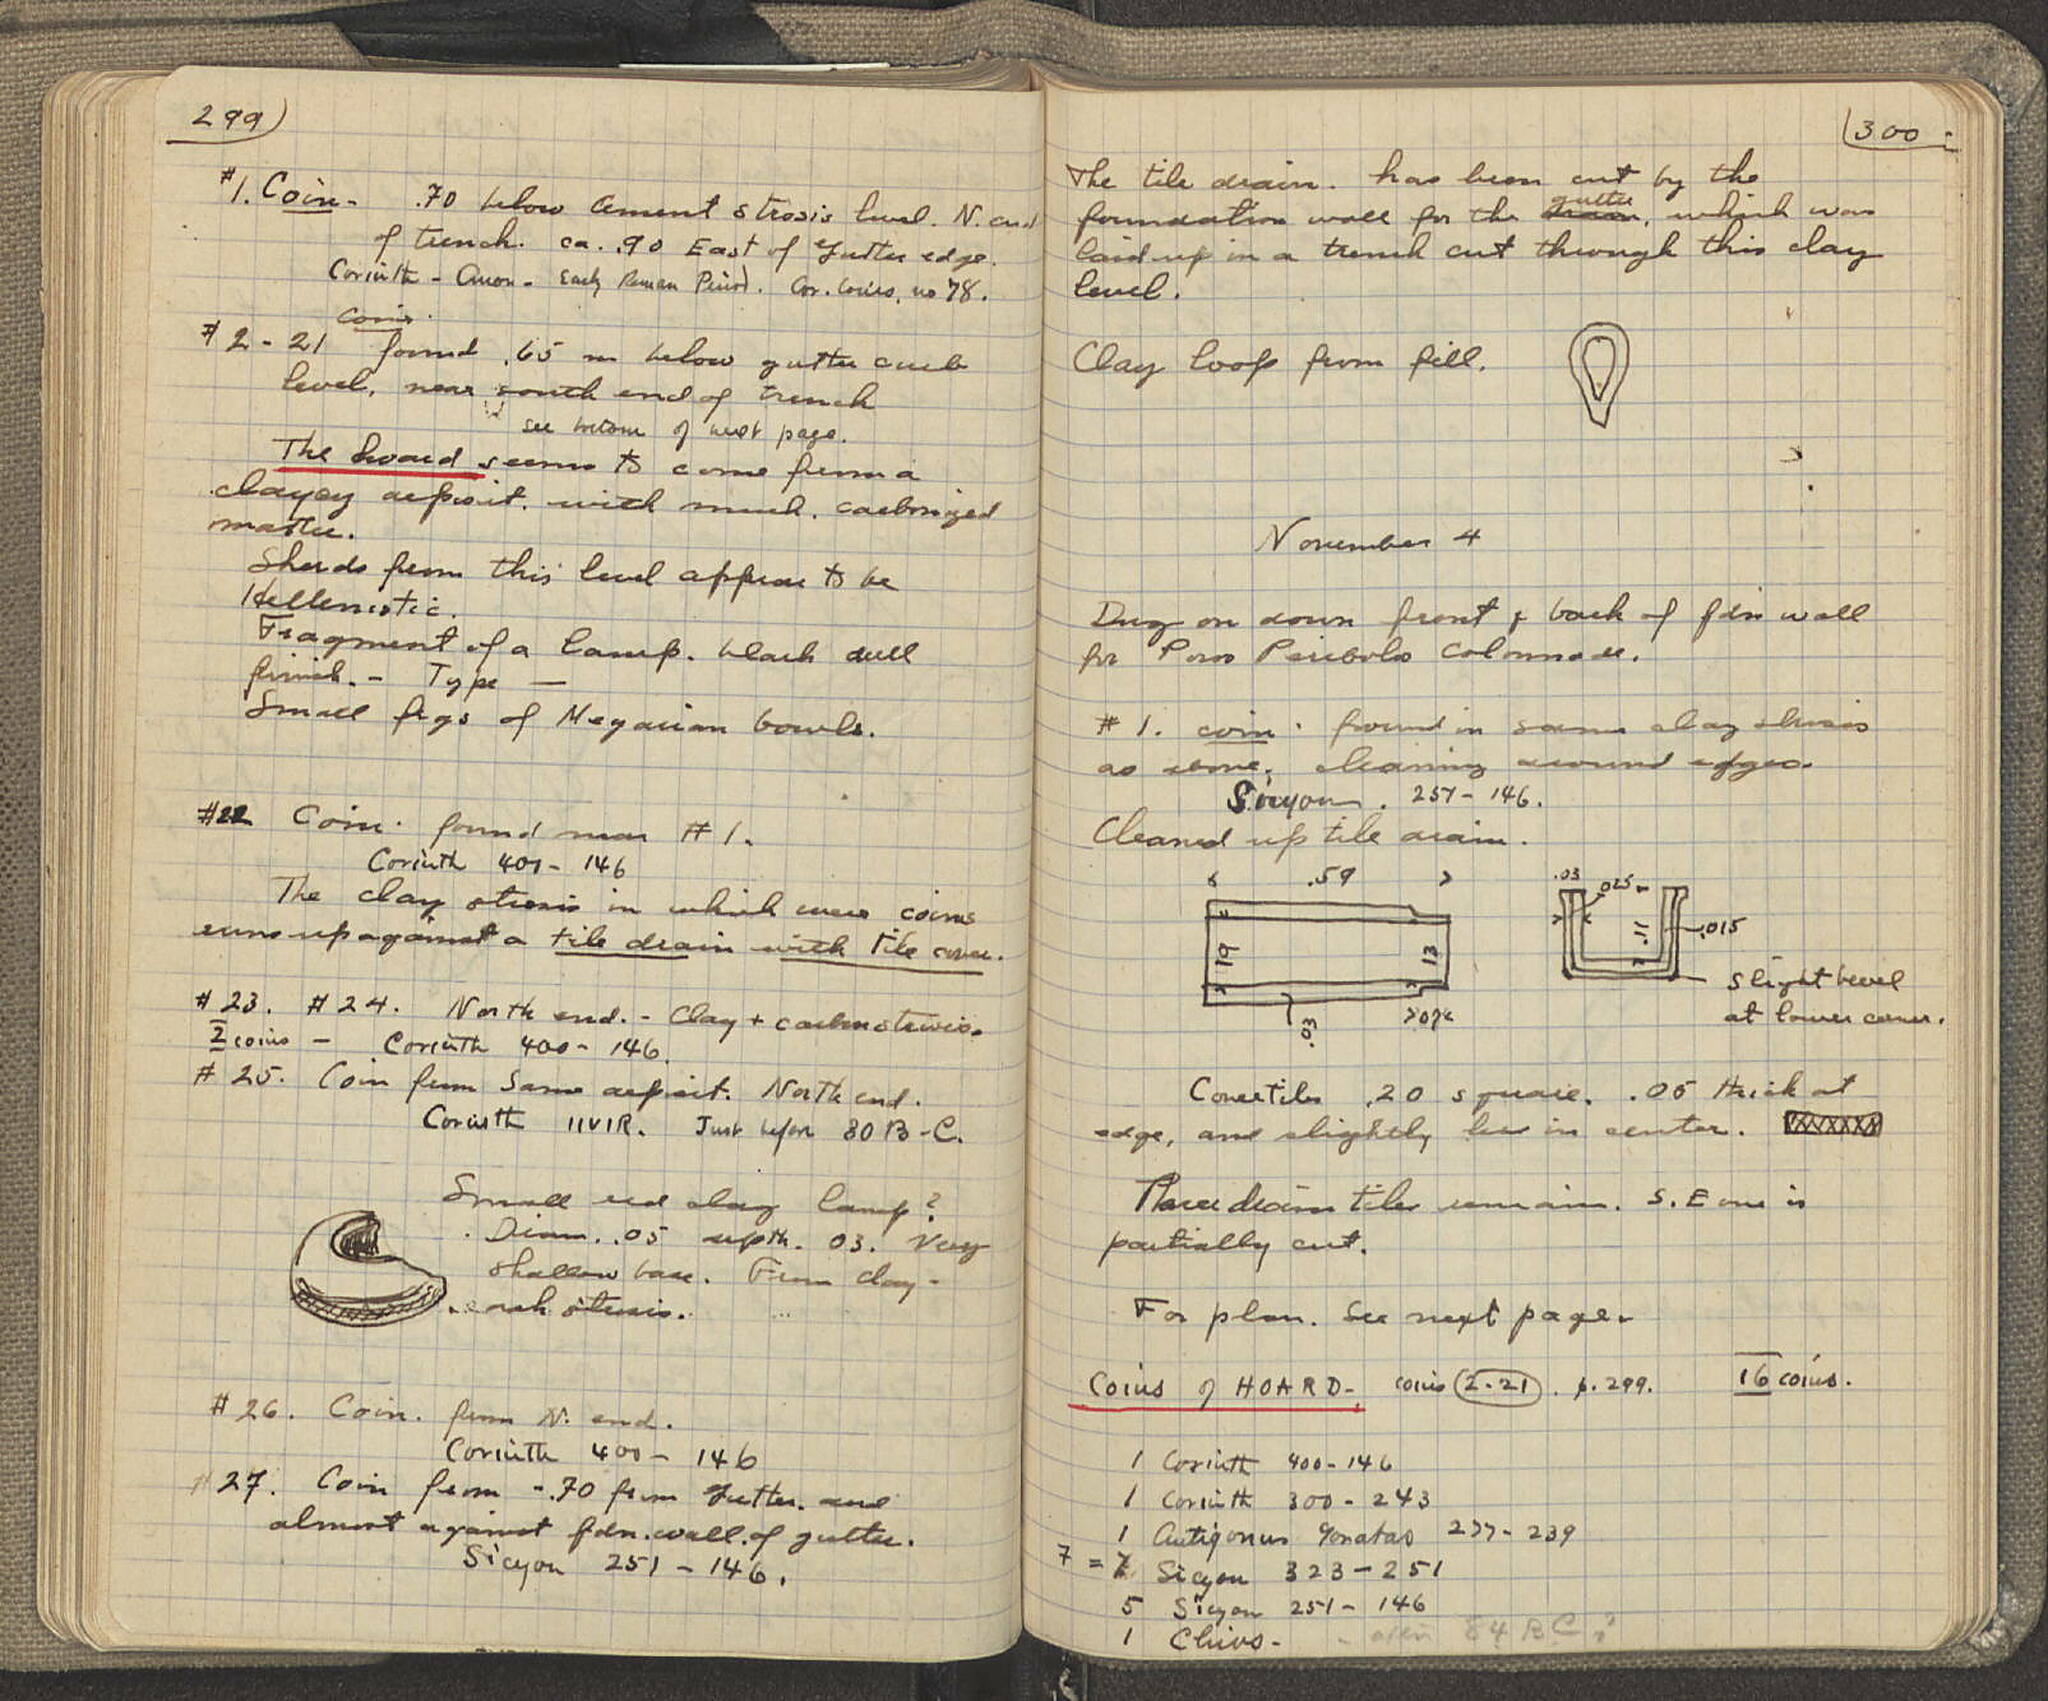 299)
#1. Coin - .70 below cement strosis level. N. end
of trench. ca. .90 East of Gutter edge.
Corinth - Anon - Early Roman Period. Cor. Coins, no 78.
coins.
#2 - 21 found .65 m below gutter curb
level, near south end of trench
see bottom of next page.
The hoard seems to come from a
clayey deposit. with much. carbonized
matter.
Sherds from this level appear to be
Hellenistic.
Fragment of a lamp. black dull
finish. - Type —
Small frgs of Megarian bowls.
#22 Coin. found near #1.
Corinth 400 - 146
The clay strosis in which were coins
runs up against a tile drain with tile cover.
#23. #24. North end. - Clay + carbon strosis.
2 coins - Corinth 400 - 146.
#25. Coin from same deposit. North end.
Corinth IIVIR. Just before 30 B-C.
Small red clay lamp?
Diam. .05 depth. 03. Very
shallow base. From clay -
ash strosis.
#26. Coin. from N. end.
Corinth 400 - 146
#27. Coin from -.70 from gutter. and
almost against fdn. wall. of gutter.
Sicyon 251 - 146.
300
The tile drain. has been cut by the
gutter
foundation wall for the drain, which was
laid up in a trench cut through this clay
level.
Clay loop from fill.
November 4
Dug on down front & back of fdn wall
for Poros Peribolo Colonnade.
#1. coin. found in same clay strosis
as above, cleaning around edges.
Sicyon. 251 - 146.
Cleaned up tile drain.
.59
.03 .025
19 13 .11 .015
slight bevel
at lower corner.
.03
Cover tiles .20 square. .05 thick at
edge, and slightly less in center.
Three drain tiles remain. S.E one is
partially cut.
For plan. See next page.
Coins of HOARD - coins 2-21. p. 299. 16 coins.
1 Corinth 400 - 146
1 Corinth 300 - 243
1 Antigonus Gonatas 277 - 239
7 = 7 Sicyon 323 - 251
5 Sicyon 251 - 146
1 Chios - 84 BC ?